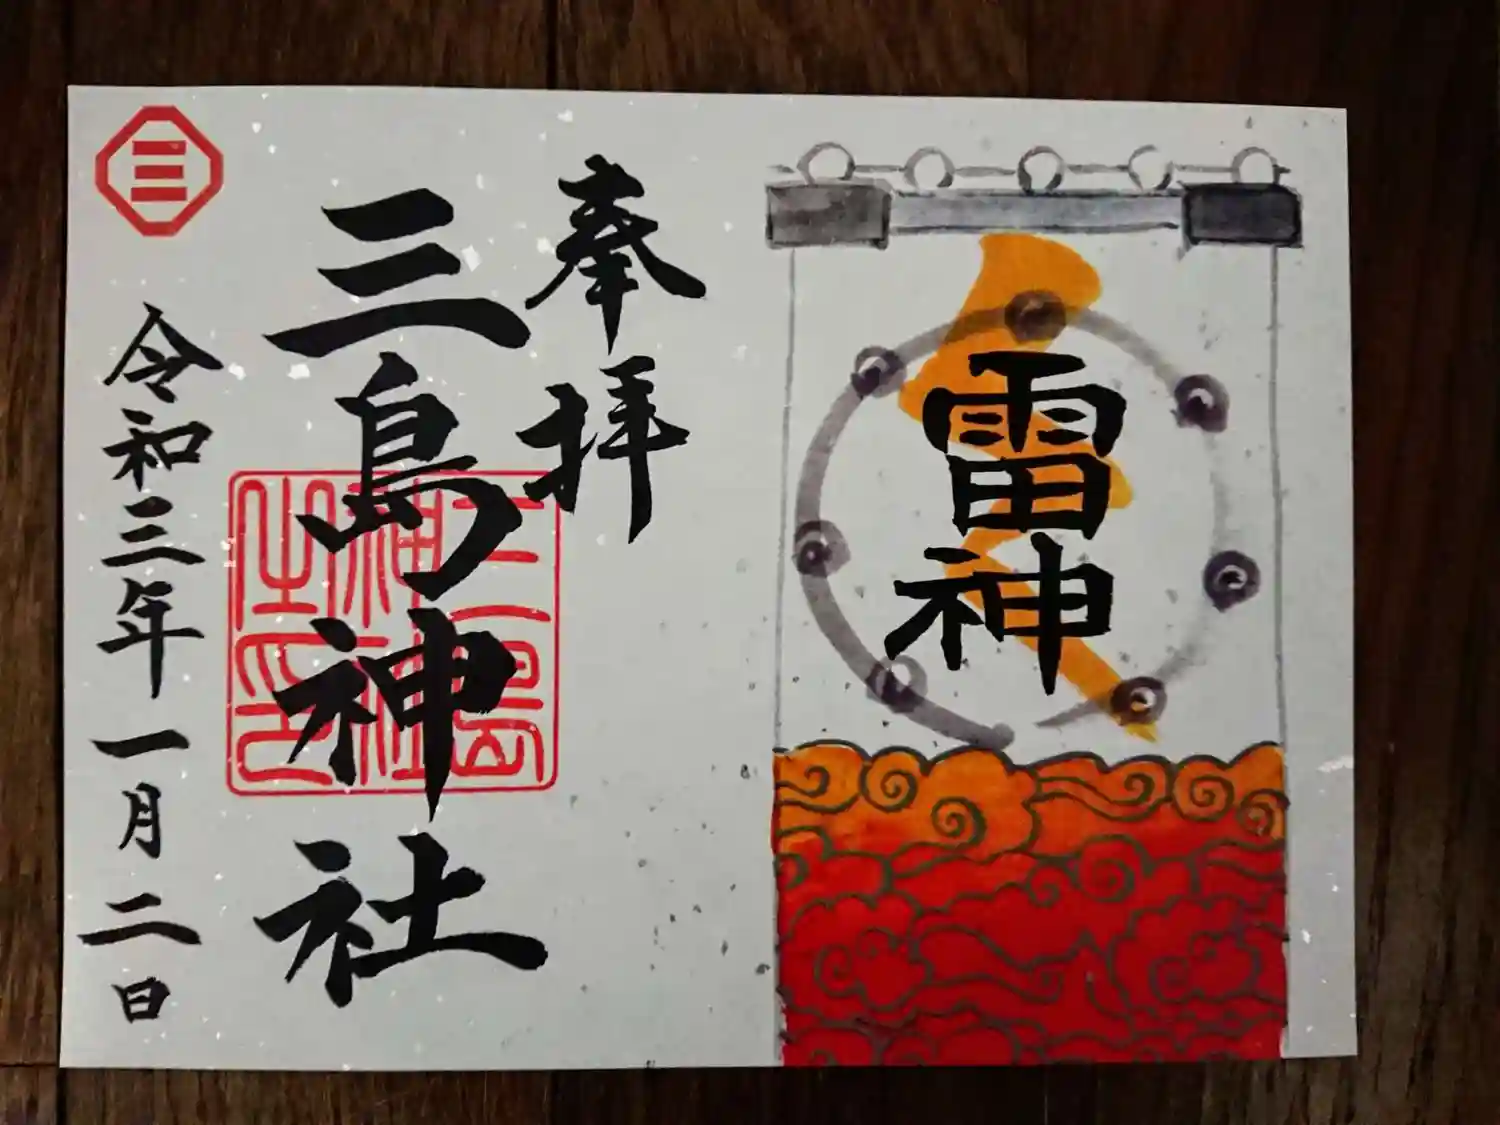 雷神
奉拝
三島神社
三島神社之印
令和三年一月二日
三